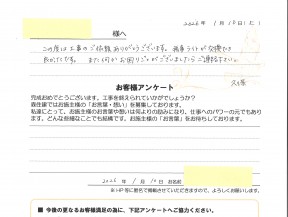 2026年 1月10日(土)
様へ
この度は工事のご依頼ありがとうございます。
また何かお困りごとがございましたらご連絡下さい。
久保
お客様アンケート
完成おめでとうございます。工事を終えられていかがでしょうか？
森住建ではお施主様の「お言葉・想い」を募集しております。
私達にとって、お施主様のお言葉や想いは何よりの励みになり、仕事へのパワーの元でもあり
ます。どんな些細なことでも結構です。お施主様の「お言葉」をお待ちしております。
2026年 1月10日 お名前
※HP等に匿名で掲載させていただきますので、よろしくお願いします。
■ 今後の更なるお客様満足の為に、下記アンケートへご協力ください。